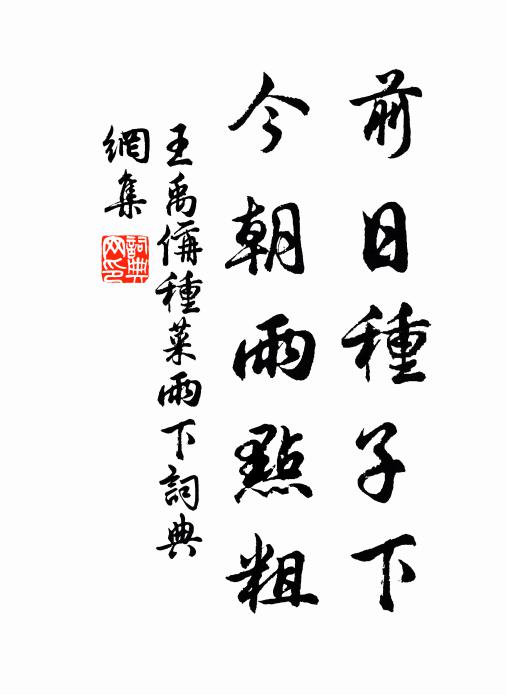 前日種子下
今朝雨點粗
王禹偁種菜雨下詞典
網集
詞典
网印